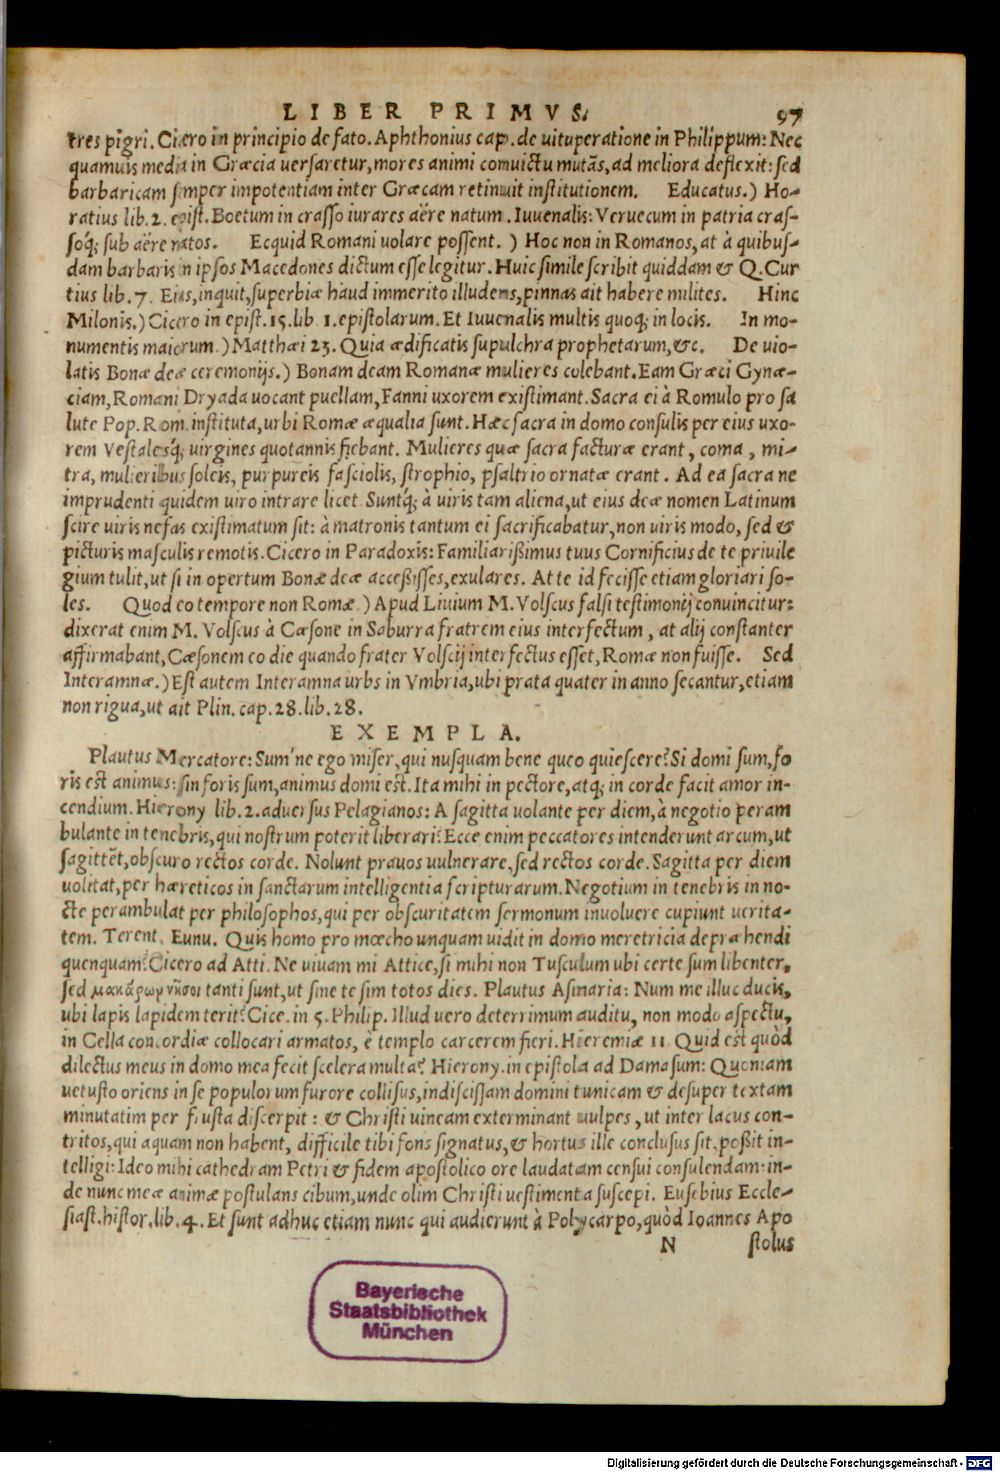 LIBER PRIMVS. 97
tres pigri. Cicero in principio de fato. Aphthonius cap. de uituperatione in Philippum: Nec
quamuis media in Græcia uersaretur, mores animi conuictu mutãs, ad meliora deflexit: sed
barbaricam semper impotentiam inter Græcam retinuit institutionem. Educatus.) Ho-
ratius lib. 2. epist. Boetum in crasso iurares aëre natum. Iuuenalis: Veruecum in patria cras-
soq́; sub aëre natos. Ecquid Romani uolare possent. ) Hoc non in Romanos, at à quibus-
dam barbaris in ipsos Macedones dictum esse legitur. Huic simile scribit quiddam & Q. Cur
tius lib. 7. Eius, inquit, superbiæ haud immerito illudens, pinnas ait habere milites. Hinc
Milonis.) Cicero in epist. 15. lib. 1. epistolarum. Et Iuuenalis multis quoq; in locis. In mo-
numentis maiorum.) Matthæi 23. Quia ædificatis supulchra prophetarum, &c. De uio-
latis Bonæ deæ ceremonijs.) Bonam deam Romanæ mulieres colebant. Eam Græci Gynæ-
ciam, Romani Dryada uocant puellam, Fanni uxorem existimant. Sacra ei à Romulo pro sa
lute Pop. Rom. instituta, urbi Romæ æqualia sunt. Hæc sacra in domo consulis per eius uxo-
rem Vestalesq́; uirgines quotannis fiebant. Mulieres quæ sacra facturæ erant, coma, mi-
tra, mulieribus soleis, purpureis fasciolis, strophio, psaltrio ornatæ erant. Ad ea sacra ne
imprudenti quidem uiro intrare licet. Suntq́; à uiris tam aliena, ut eius deæ nomen Latinum
scire uiris nefas existimatum sit: à matronis tantum ei sacrificabatur, non uiris modo, sed &
picturis masculis remotis. Cicero in Paradoxis: Familiarißimus tuus Cornificius de te priuile
gium tulit, ut si in opertum Bonæ deæ acceßisses, exulares. At te id fecisse etiam gloriari so-
les. Quod eo tempore non Romæ.) Apud Liuium M. Volscus falsi testimonij conuincitur:
dixerat enim M. Volscus à Cæsone in Saburra fratrem eius interfectum, at alij constanter
affirmabant, Cæsonem eo die quando frater Volscij interfectus esset, Romæ non fuisse. Sed
Interamnæ.) Est autem Interamna urbs in Vmbria, ubi prata quater in anno secantur, etiam
non rigua, ut ait Plin. cap. 28. lib. 28.
EXEMPLA.
Plautus Mercatore: Sum'ne ego miser, qui nusquam bene queo quiescere? Si domi sum, fo
ris est animus: sin foris sum, animus domi est. Ita mihi in pectore, atq; in corde facit amor in-
cendium. Hierony. lib. 2. aduersus Pelagianos: A sagitta uolante per diem, à negotio peram
bulante in tenebris, qui nostrum poterit liberari? Ecce enim peccatores intenderunt arcum, ut
sagittẽt, obscuro rectos corde. Nolunt prauos uulnerare, sed rectos corde. Sagitta per diem
uolitat, per hæreticos in sanctarum intelligentia scripturarum. Negotium in tenebris in no-
cte perambulat per philosophos, qui per obscuritatem sermonum inuoluere cupiunt uerita-
tem. Terent. Eunu. Quis homo pro mœcho unquam uidit in domo meretricia deprahendi
quenquam? Cicero ad Atti. Ne uiuam mi Attice, si mihi non Tusculum ubi certe sum libenter,
sed μακάρων νῆσοι tanti sunt, ut sine te sim totos dies. Plautus Asinaria: Num me illuc ducis,
ubi lapis lapidem terit? Cice. in 5. Philip. Illud uero deterrimum auditu, non modo aspectu,
in Cella concordiæ collocari armatos, è templo carcerem fieri. Hieremiæ 11. Quid est quòd
dilectus meus in domo mea fecit scelera multa? Hierony. in epistola ad Damasum: Quoniam
uetusto oriens in se populorum furore collisus, indiscissam domini tunicam & desuper textam
minutatim per frusta discerpit: & Christi uineam exterminant uulpes, ut inter lacus con-
tritos, qui aquam non habent, difficile tibi fons signatus, & hortus ille conclusus sit, poßit in-
telligi: Ideo mihi cathedram Petri & fidem apostolico ore laudatam censui consulendam: in-
de nunc meæ animæ postulans cibum, unde olim Christi uestimenta suscepi. Eusebius Eccle-
siast. histor. lib. 4. Et sunt adhuc etiam nunc qui audierunt à Polycarpo, quòd Ioannes Apo
N stolus
Bayerische
Staatsbibliothek
München
Digitalisierung gefördert durch die Deutsche Forschungsgemeinschaft - DFG